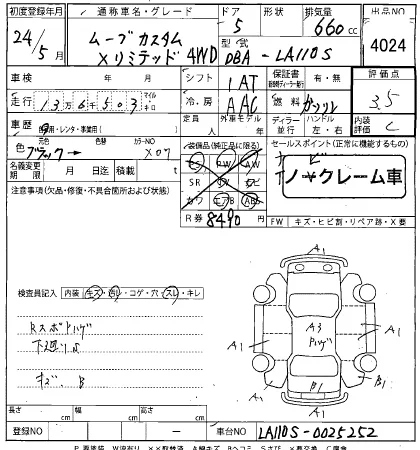 初度登録年月 通称車名・グレード ドア 形状 排気量 出品NO
24年 5月 ムーブカスタム Xリミテッド 4WD 5 660cc 4024
型式 DBA-LA110S
車検 年 月 シフト 1AT 保証書 有・無 評価点 3.5
走行 13万6千503 マイル キロ 冷房 AAC 燃料 ガソリン
車歴 自家用・レンタ・事業用( ) 定員 人 外車モデル 年 ディーラー 並行 ハンドル 左・右 内装評価 C
色 ブラック→ 色替 カラーNO X07 装備品(純正品に限る) セールスポイント(正常に機能するもの)
ナビ
名義変更期限 月 日迄 積載 t PS PW SR カワ エアB ABS
ノークレーム車
注意事項(欠品・修復・不具合箇所および状態)
R券 8490
FW キズ・ヒビ割・リペア跡・X要
検査員記入 内装 キズ・汚レ・コゲ・穴・スレ・キレ
下廻りサ
キズ B
A1
A3
A1 A1
B1
B1
A1
長さ cm 幅 cm 高さ cm
登録NO 車台NO LA110S-0025252